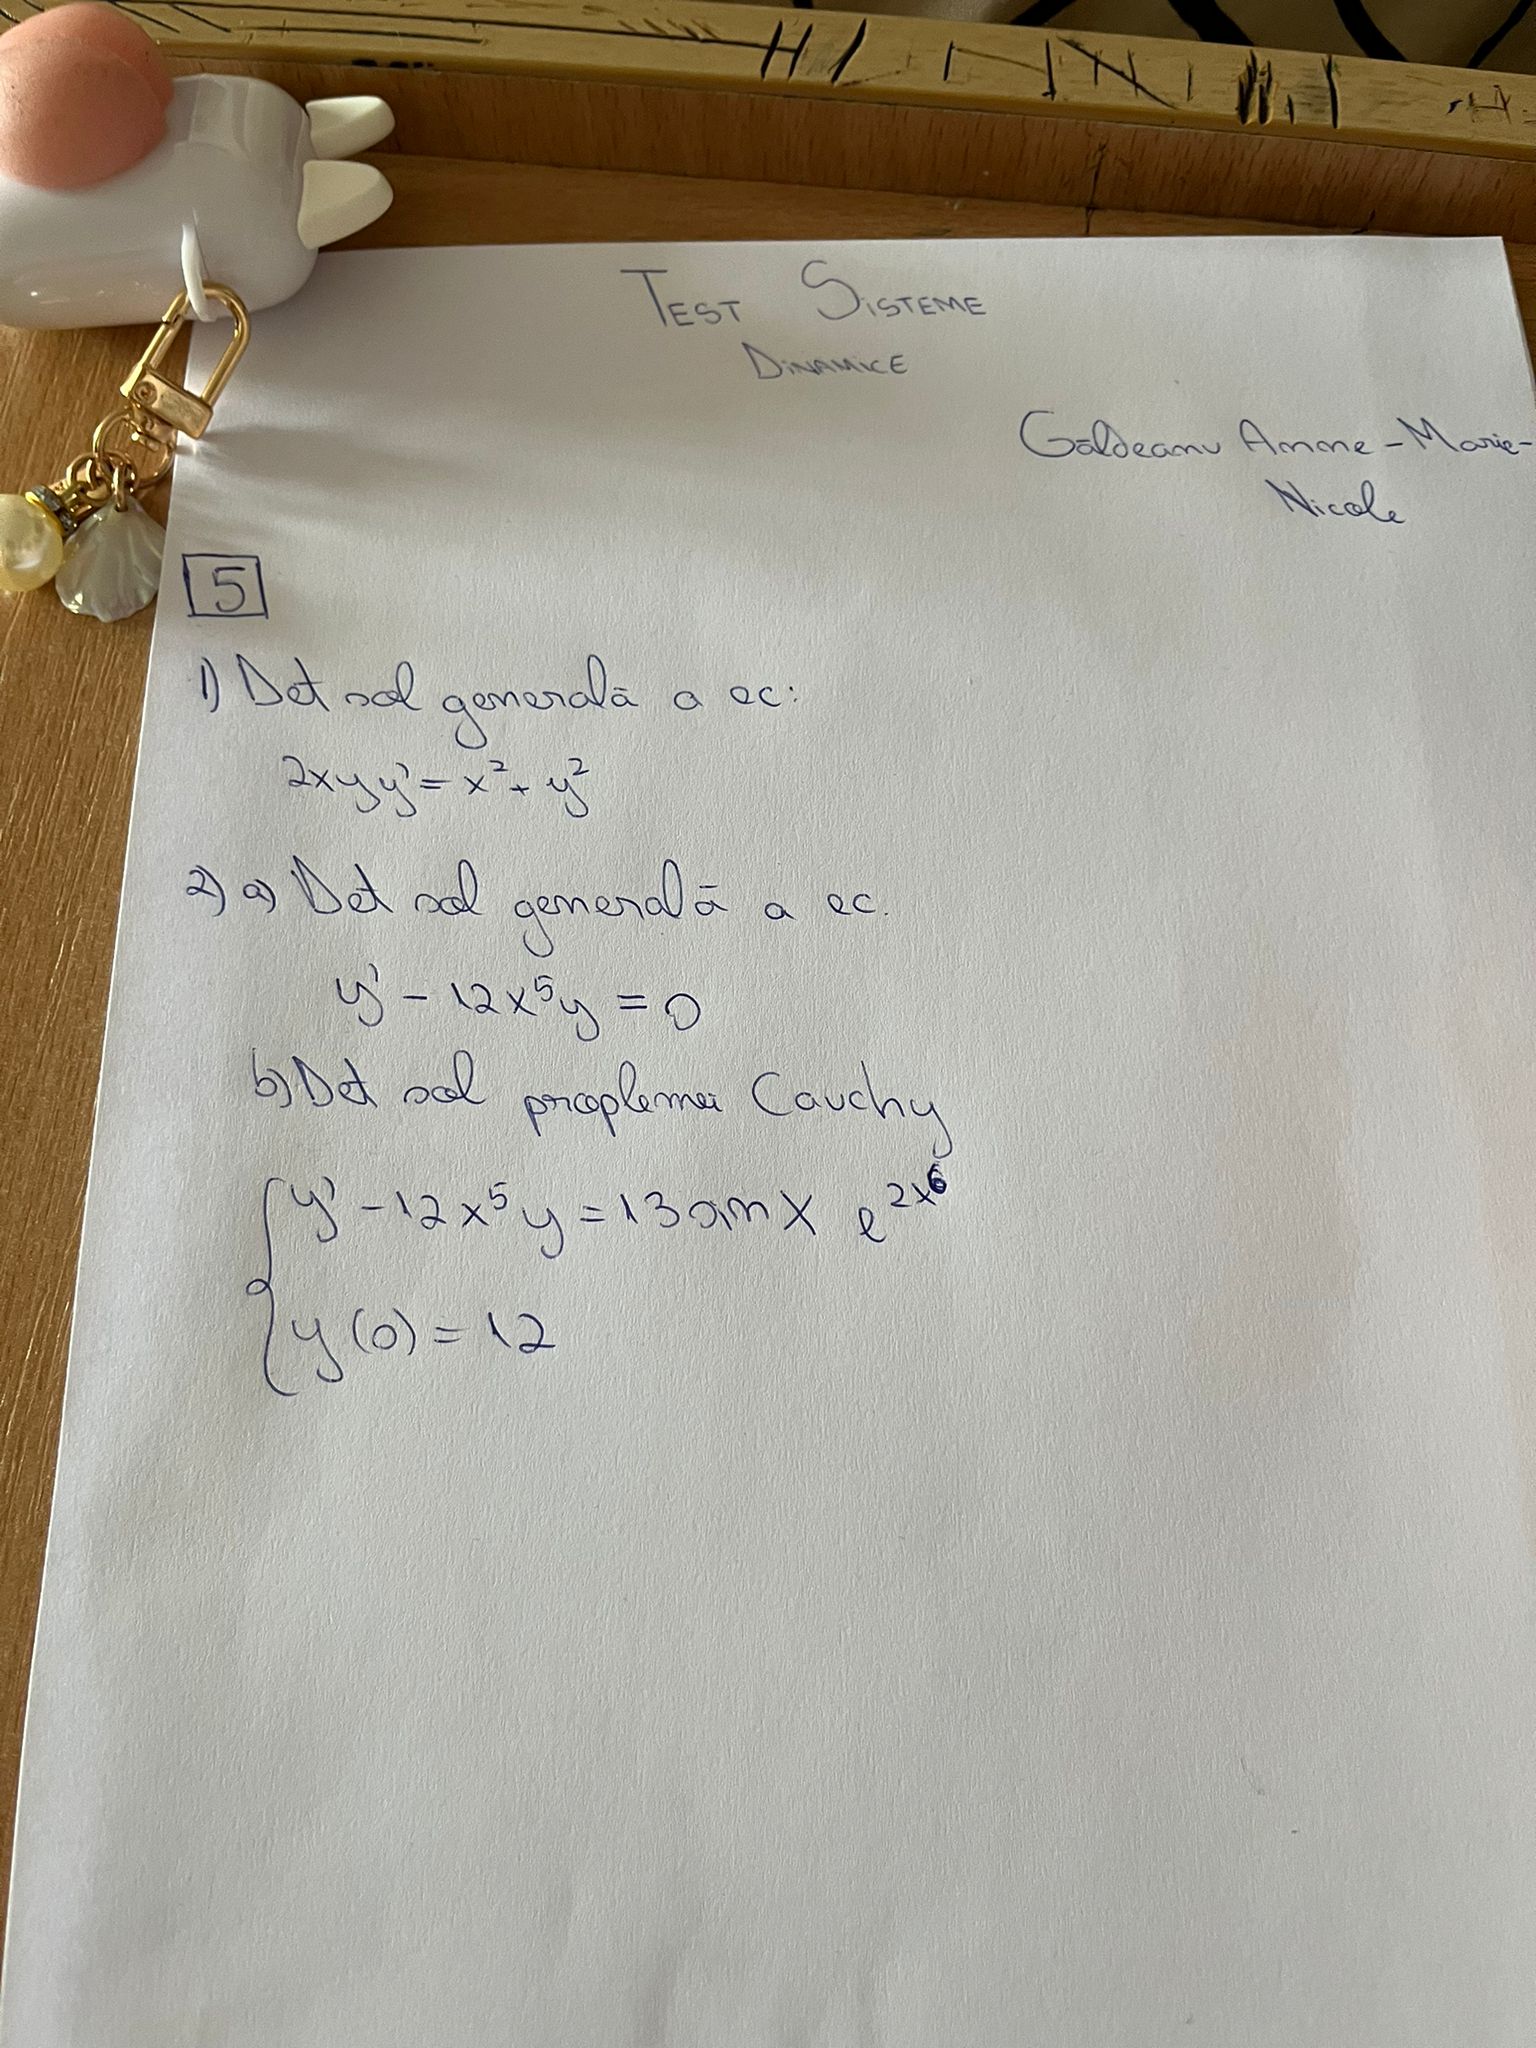 TEST SISTEME
DINAMICE
Găldeanu Anne-Marie-
Nicole
5
1) Det sol generală a ec:
2xyy' = x² + y²
2) a) Det sol generală a ec.
y' - 12x⁵y = 0
b) Det sol proplemei Cauchy
{ y' - 12x⁵y = 13 sin x e^{2x⁶}
y(0) = 12